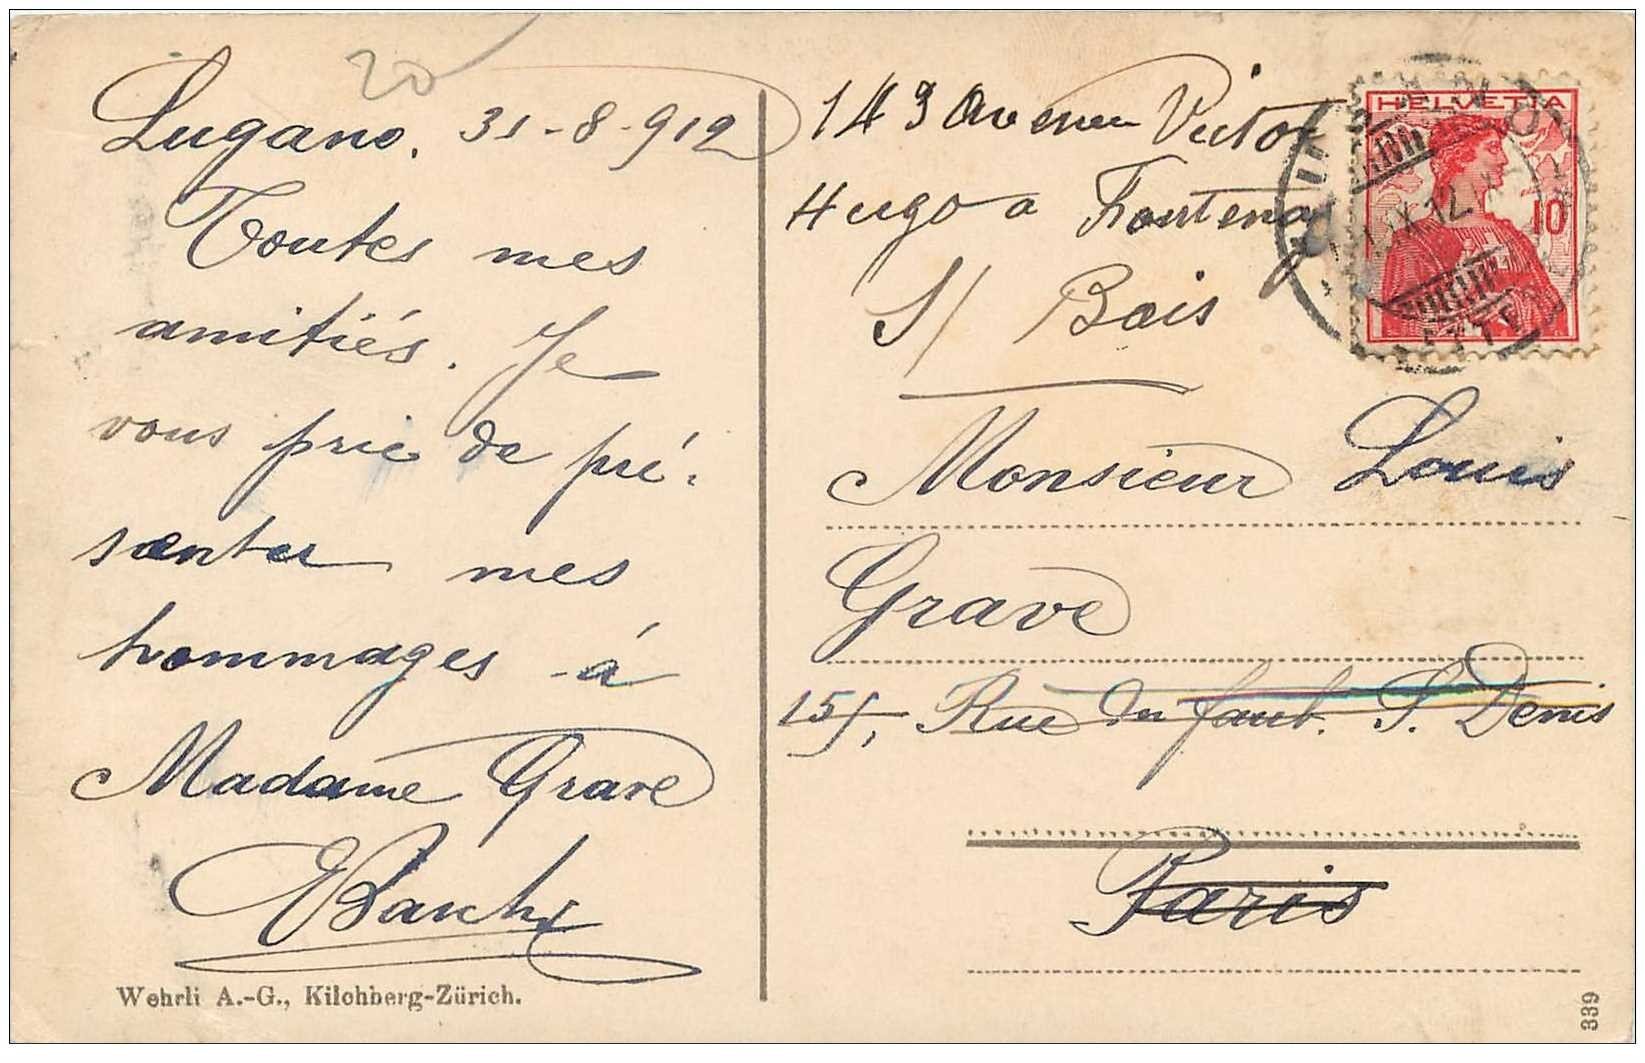 20
Lugano. 31-8-912
Toutes mes
amitiés. Je
vous prie de pré-
senter mes
hommages à
Madame Grave
Wehrli A.-G., Kilchberg-Zürich.
143 Avenue Victor
Hugo a Fontenay
S/ Bois
HELVETIA
10
Monsieur Louis
Grave
155, Rue du faub. S. Denis
Paris
339